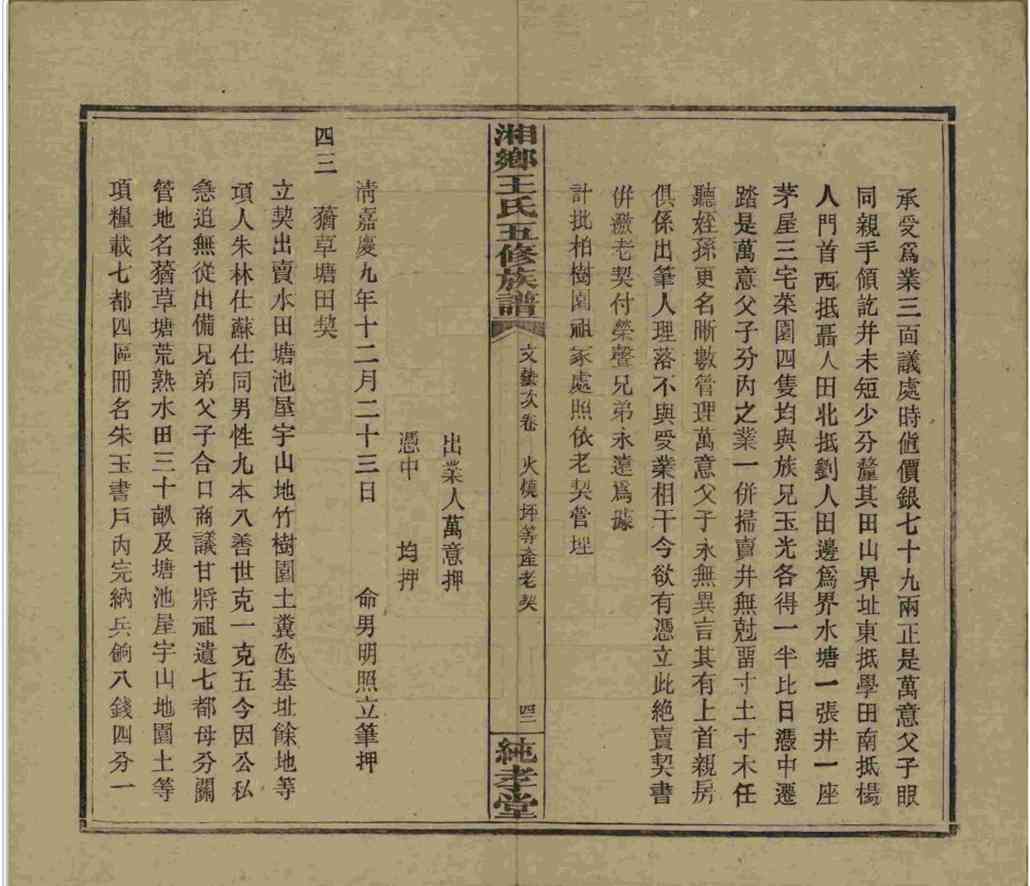 承受爲業三面議處時值價銀七十九兩正是萬意父子眼
同親手領訖并未短少分釐其田山界址東抵學田南抵楊
人門首西抵聶人田北抵劉人田邊爲界水塘一張井一座
茅屋三宅菜園四隻均與族兄玉光各得一半比日憑中遷
踏是萬意父子分內之業一併掃賣井無尅畱寸土寸木任
聽姪孫更名晰數管理萬意父子永無異言其有上首親房
俱係出筆人理落不與受業相干今欲有憑立此絶賣契書
併繳老契付榮聲兄弟永遠爲據
計批柏樹園祖冢處照依老契管理
湘鄉王氏五修族譜
文藝次卷 火燒坪等產老契
四二
純孝堂
出業人萬意押
憑中 均押
淸嘉慶九年十二月二十三日 命男明照立筆押
四三 蕕草塘田契
立契出賣水田塘池屋宇山地竹樹園土糞氹基址餘地等
項人朱林仕蘇仕同男性九本八善世克一克五今因公私
急迫無從出備兄弟父子合口商議甘將祖遺七都母分關
管地名蕕草塘荒熟水田三十畝及塘池屋宇山地園土等
項糧載七都四區冊名朱玉書戶內完納兵餉八錢四分一